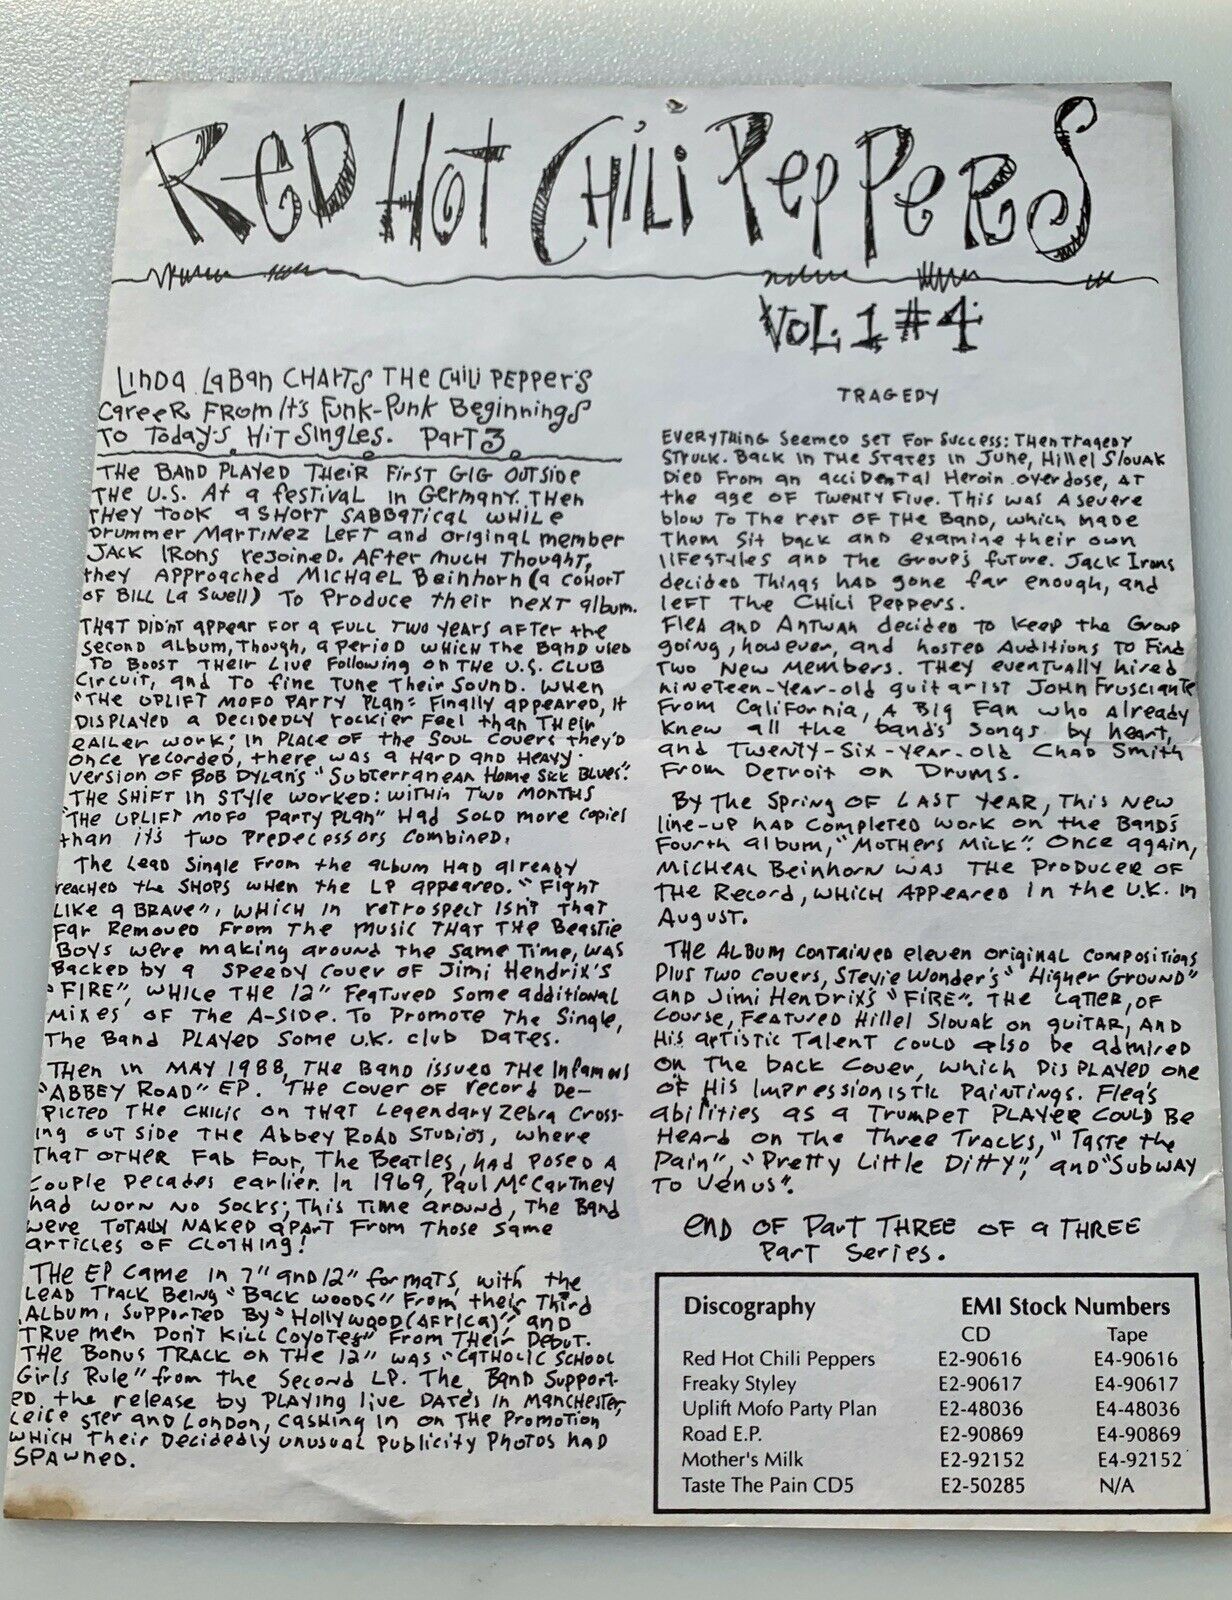 RED HOT CHILI PEPPERS
VOL. 1 #4
LINDA LABAN CHARTS THE CHILI PEPPER'S
CAREER FROM IT'S FUNK-PUNK BEGINNINGS
TO TODAY'S HIT SINGLES. PART 3.
THE BAND PLAYED THEIR FIRST GIG OUTSIDE
THE U.S. AT A FESTIVAL IN GERMANY. THEN
THEY TOOK A SHORT SABBATICAL WHILE
DRUMMER MARTINEZ LEFT AND ORIGINAL MEMBER
JACK IRONS REJOINED. AFTER MUCH THOUGHT,
THEY APPROACHED MICHAEL BEINHORN (A COHORT
OF BILL LA SWELL) TO PRODUCE THEIR NEXT ALBUM.
THAT DID'NT APPEAR FOR A FULL TWO YEARS AFTER THE
SECOND ALBUM, THOUGH, A PERIOD WHICH THE BAND USED
TO BOOST THEIR LIVE FOLLOWING ON THE U.S. CLUB
CIRCUIT, AND TO FINE TUNE THEIR SOUND. WHEN
"THE UPLIFT MOFO PARTY PLAN" FINALLY APPEARED, IT
DISPLAYED A DECIDEDLY ROCKIER FEEL THAN THEIR
EAILER WORK; IN PLACE OF THE SOUL COVERS THEY'D
ONCE RECORDED, THERE WAS A HARD AND HEAVY
VERSION OF BOB DYLAN'S "SUBTERRANEAN HOME SICK BLUES".
THE SHIFT IN STYLE WORKED: WITHIN TWO MONTHS
"THE UPLIFT MOFO PARTY PLAN" HAD SOLD MORE COPIES
THAN IT'S TWO PREDECESSORS COMBINED.
THE LEAD SINGLE FROM THE ALBUM HAD ALREADY
REACHED THE SHOPS WHEN THE LP APPEARED. "FIGHT
LIKE A BRAVE", WHICH IN RETROSPECT ISN'T THAT
FAR REMOVED FROM THE MUSIC THAT THE BEASTIE
BOYS WERE MAKING AROUND THE SAME TIME, WAS
BACKED BY A SPEEDY COVER OF JIMI HENDRIX'S
"FIRE", WHILE THE 12" FEATURED SOME ADDITIONAL
MIXES OF THE A-SIDE. TO PROMOTE THE SINGLE,
THE BAND PLAYED SOME U.K. CLUB DATES.
THEN IN MAY 1988, THE BAND ISSUED THE INFAMOUS
"ABBEY ROAD" EP. THE COVER OF RECORD DE-
PICTED THE CHILIS ON THAT LEGENDARY ZEBRA CROSS-
ING OUT SIDE THE ABBEY ROAD STUDIOS, WHERE
THAT OTHER FAB FOUR, THE BEATLES, HAD POSED A
COUPLE DECADES EARLIER. IN 1969, PAUL MCCARTNEY
HAD WORN NO SOCKS; THIS TIME AROUND, THE BAND
WERE TOTALLY NAKED APART FROM THOSE SAME
ARTICLES OF CLOTHING!
THE EP CAME IN 7" AND 12" FORMATS, WITH THE
LEAD TRACK BEING "BACK WOODS" FROM THEIR THIRD
ALBUM, SUPPORTED BY "HOLLYWOOD (AFRICA)", AND
TRUE MEN DON'T KILL COYOTES" FROM THEIR DEBUT.
THE BONUS TRACK ON THE 12" WAS "CATHOLIC SCHOOL
GIRLS RULE" FROM THE SECOND LP. THE BAND SUPPORT-
ED THE RELEASE BY PLAYING LIVE DATES IN MANCHESTER,
LEICE STER AND LONDON, CASHING IN ON THE PROMOTION
WHICH THEIR DECIDEDLY UNUSUAL PUBLICITY PHOTOS HAD
SPAWNED.
TRAGEDY
EVERYTHING SEEMED SET FOR SUCCESS: THEN TRAGEDY
STRUCK. BACK IN THE STATES IN JUNE, HILLEL SLOVAK
DIED FROM AN ACCIDENTAL HEROIN OVERDOSE, AT
THE AGE OF TWENTY FIVE. THIS WAS A SEVERE
BLOW TO THE REST OF THE BAND, WHICH MADE
THEM SIT BACK AND EXAMINE THEIR OWN
LIFESTYLES AND THE GROUP'S FUTURE. JACK IRONS
DECIDED THINGS HAD GONE FAR ENOUGH, AND
LEFT THE CHILI PEPPERS.
FLEA AND ANTWAN DECIDED TO KEEP THE GROUP
GOING, HOWEVER, AND HOSTED AUDITIONS TO FIND
TWO NEW MEMBERS. THEY EVENTUALLY HIRED
NINETEEN-YEAR-OLD GUITARIST JOHN FRUSCIANTE
FROM CALIFORNIA, A BIG FAN WHO ALREADY
KNEW ALL THE BAND'S SONGS BY HEART,
AND TWENTY-SIX-YEAR-OLD CHAD SMITH
FROM DETROIT ON DRUMS.
BY THE SPRING OF LAST YEAR, THIS NEW
LINE-UP HAD COMPLETED WORK ON THE BAND'S
FOURTH ALBUM, "MOTHERS MILK". ONCE AGAIN,
MICHEAL BEINHORN WAS THE PRODUCER OF
THE RECORD, WHICH APPEARED IN THE U.K. IN
AUGUST.
THE ALBUM CONTAINED ELEVEN ORIGINAL COMPOSITIONS
PLUS TWO COVERS, STEVIE WONDER'S "HIGHER GROUND"
AND JIMI HENDRIX'S "FIRE". THE LATTER, OF
COURSE, FEATURED HILLEL SLOVAK ON GUITAR, AND
HIS ARTISTIC TALENT COULD ALSO BE ADMIRED
ON THE BACK COVER, WHICH DISPLAYED ONE
OF HIS IMPRESSIONISTIC PAINTINGS. FLEA'S
ABILITIES AS A TRUMPET PLAYER COULD BE
HEARD ON THE THREE TRACKS, "TASTE THE
PAIN", "PRETTY LITTLE DITTY", AND "SUBWAY
TO VENUS".
END OF PART THREE OF A THREE
PART SERIES.
Discography EMI Stock Numbers
CD Tape
Red Hot Chili Peppers E2-90616 E4-90616
Freaky Styley E2-90617 E4-90617
Uplift Mofo Party Plan E2-48036 E4-48036
Road E.P. E2-90869 E4-90869
Mother's Milk E2-92152 E4-92152
Taste The Pain CD5 E2-50285 N/A